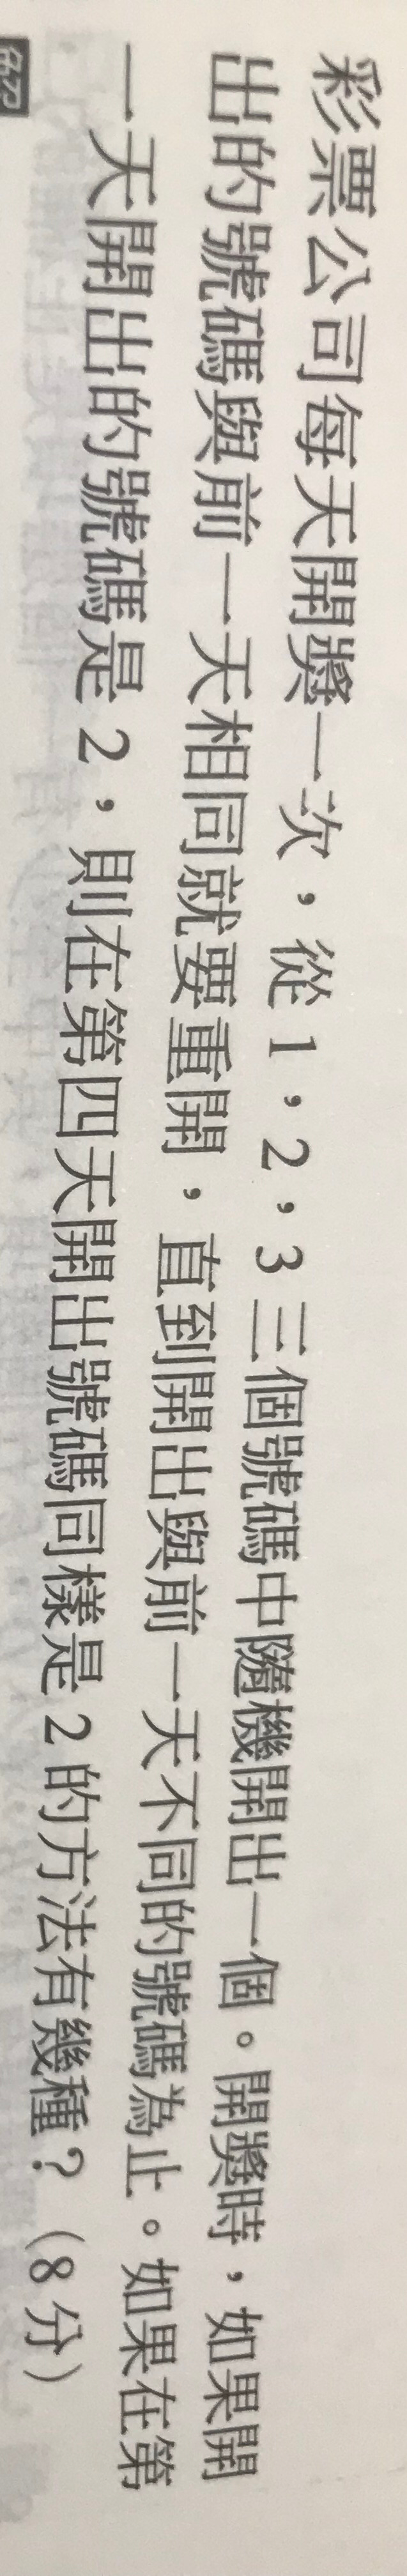 彩票公司每天開獎一次，從1，2，3三個號碼中隨機開出一個。開獎時，如果開
出的號碼與前一天相同就要重開，直到開出與前一天不同的號碼為止。如果在第
一天開出的號碼是2，則在第四天開出號碼同樣是2的方法有幾種？（8分）